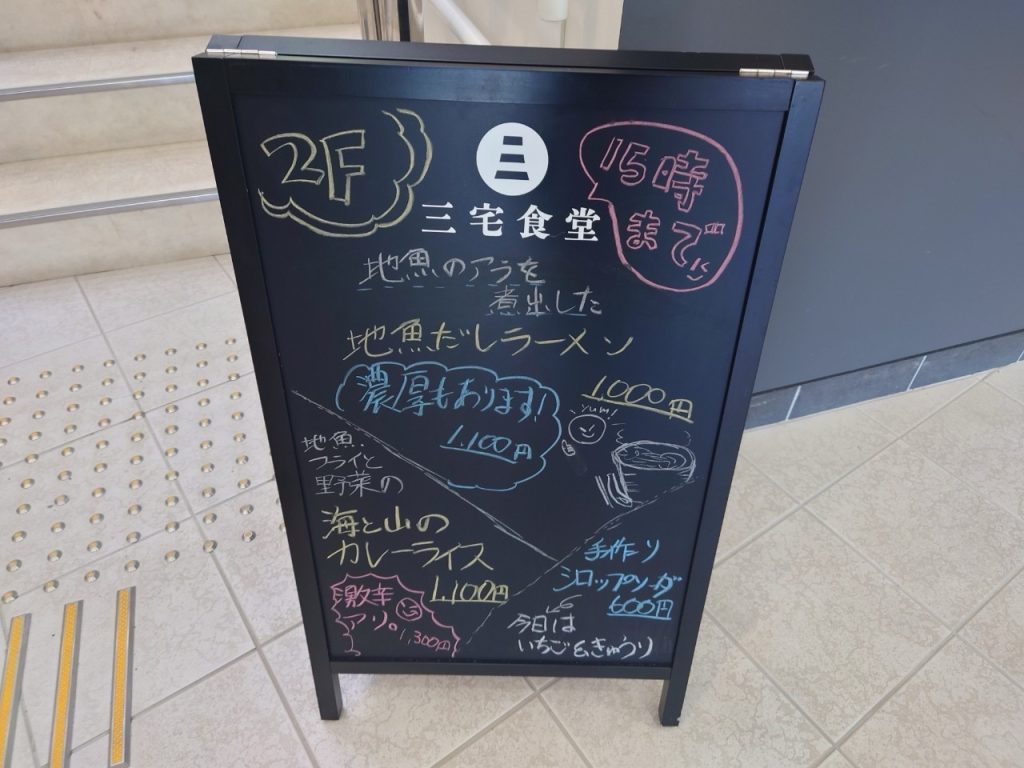 2F
三宅食堂
15時
まで
地魚のアラを
煮出した
地魚だしラーメン
1,000円
濃厚もあります!
1,100円
yum!
地魚
フライと
野菜の
海と山の
カレーライス
1,100円
激辛
アリ。
1,300円
手作り
シロップソーダ
600円
今日は
いちご&きゅうり